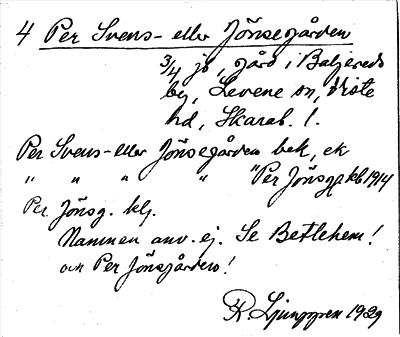 4 Per Svens- eller Jönsegården
3/4 jb, gård i Baljereds
by, Levene sn, Viste
hd, Skarab. l.
Per Svens- eller Jönsegården bek, ek
" " " " "Per Jönsg jkb 1914
Per Jönsg. klj.
Namnen anv. ej. Se Betlehem!
och Per Jönsgården!
R Ljunggren 1929